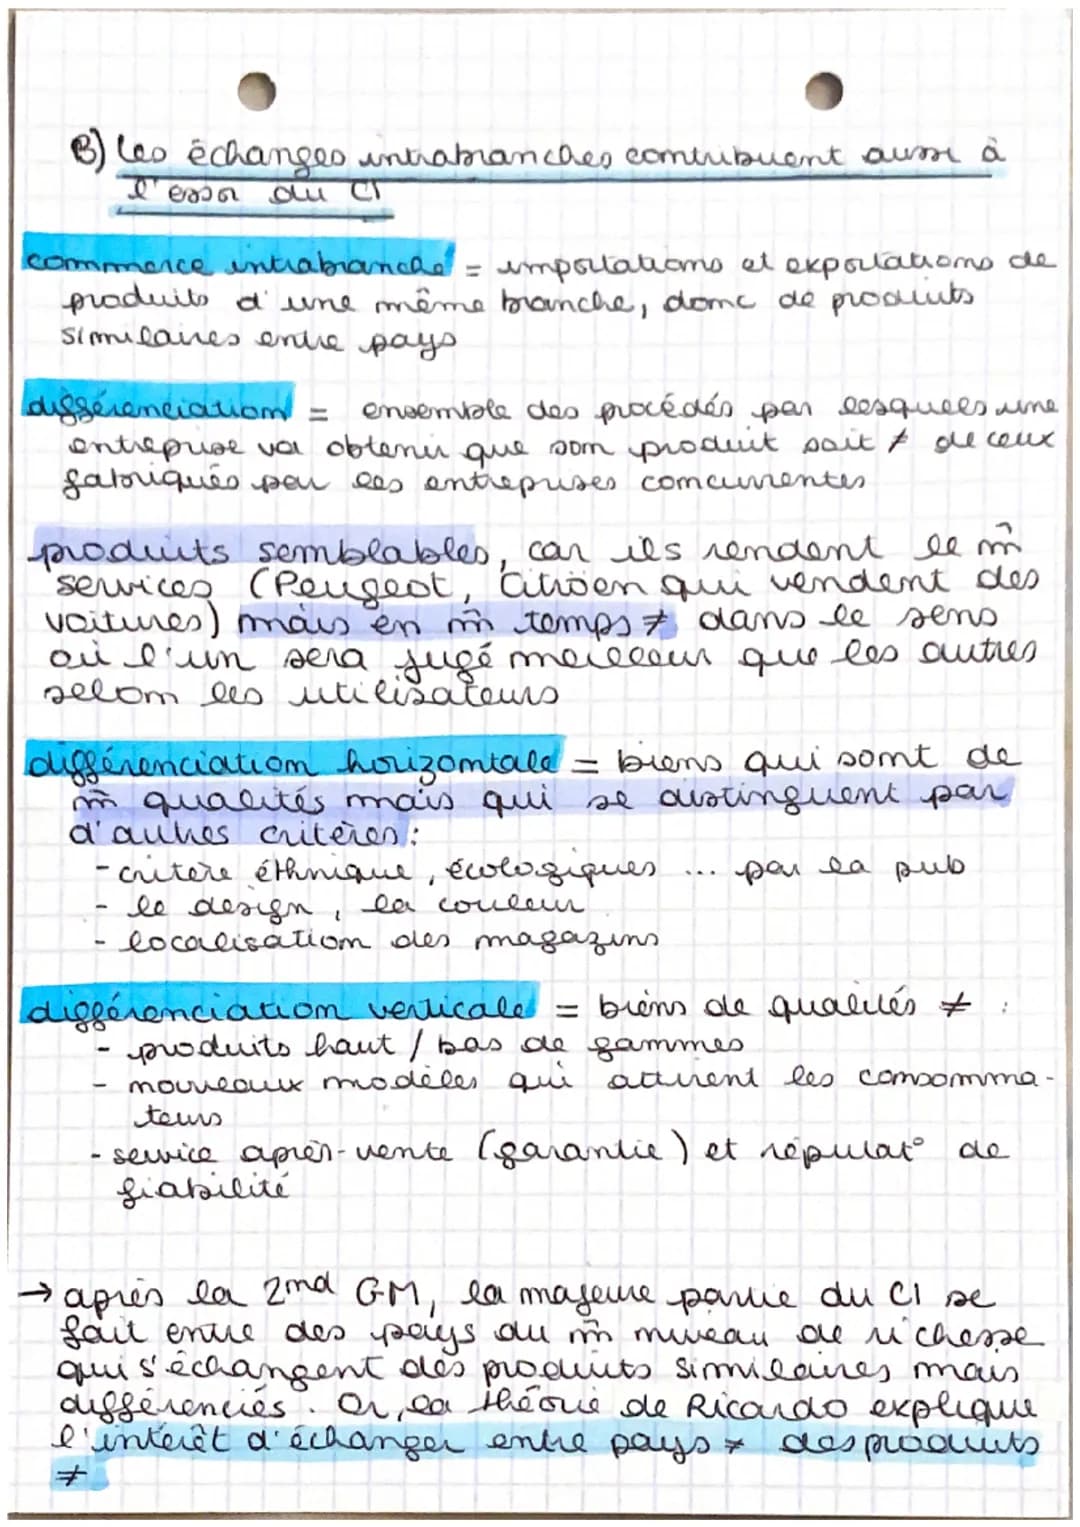 B) Les échanges intrabranches contribuent aussi à
l'essor du CI
commerce intrabranche = importations et exportations de
produits d'une même branche, donc de produits
similaires entre pays
différenciation = ensemble des procédés par lesquels une
entreprise va obtenir que son produit soit ≠ de ceux
fabriqués par les entreprises concurrentes
produits semblables, car ils rendent le m̂
services (Peugeot, Citröen qui vendent des
voitures) mais en m̂ temps ≠ dans le sens
où l'un sera jugé meilleur que les autres
selon les utilisateurs
différenciation horizontale = biens qui sont de
m̂ qualités mais qui se distinguent par
d'autres critères :
- critère éthnique, écologiques ... par la pub
- le design, la couleur
- localisation des magazins
différenciation verticale = biens de qualités ≠ :
- produits haut / bas de gammes
- nouveaux modèles qui attirent les consomma-
teurs
- service après-vente (garantie) et réputat° de
fiabilité
→ après la 2nd GM, la majeure partie du CI se
fait entre des pays du m̂ niveau de richesse
qui s'échangent des produits similaires mais
différenciés. Or, la théorie de Ricardo explique
l'intérêt d'échanger entre pays ≠ des produits
≠